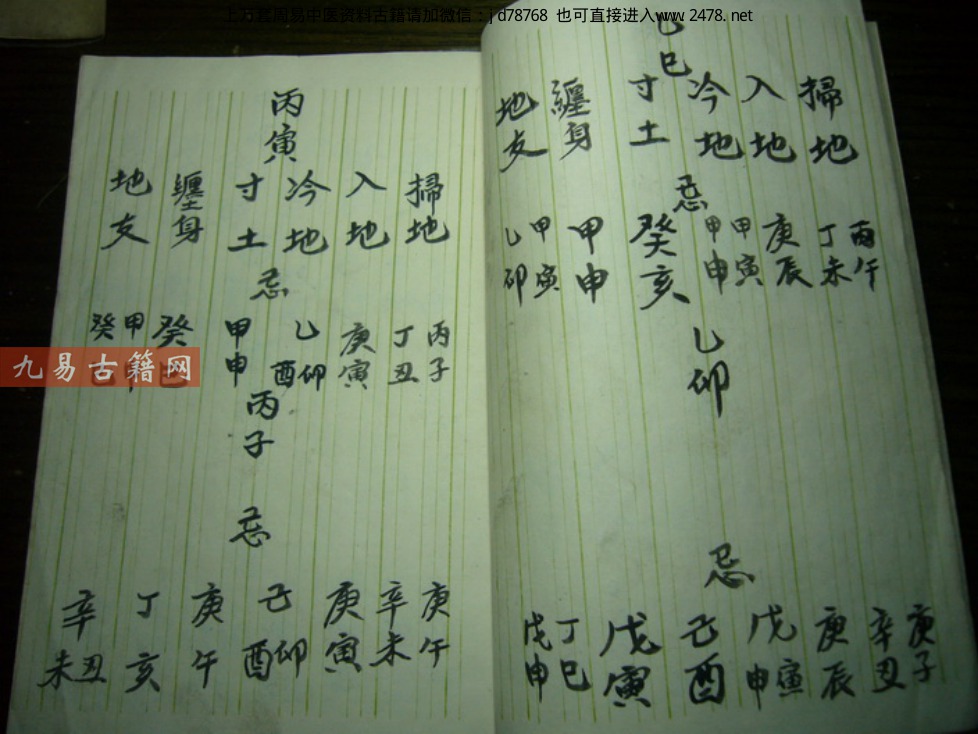 上万套周易中医资料古籍请加微信：jd78768 也可直接进入www.2478.net
己巳
掃地
入地
冷地
寸土
纏身
地支
忌
丙午
丁未
庚辰
甲寅
甲申
癸亥
甲申
甲寅
乙卯
乙卯
忌
庚子
辛丑
庚辰
戊寅申
己酉
戊寅
丁巳
戊申
丙寅
掃地
入地
冷地
寸土
纏身
地支
忌
丙子
丁丑
庚寅
乙卯酉
甲申
癸巳
甲
癸
丙子
忌
庚午
辛未
庚寅
己卯酉
庚午
丁亥
辛丑未
九易古籍网